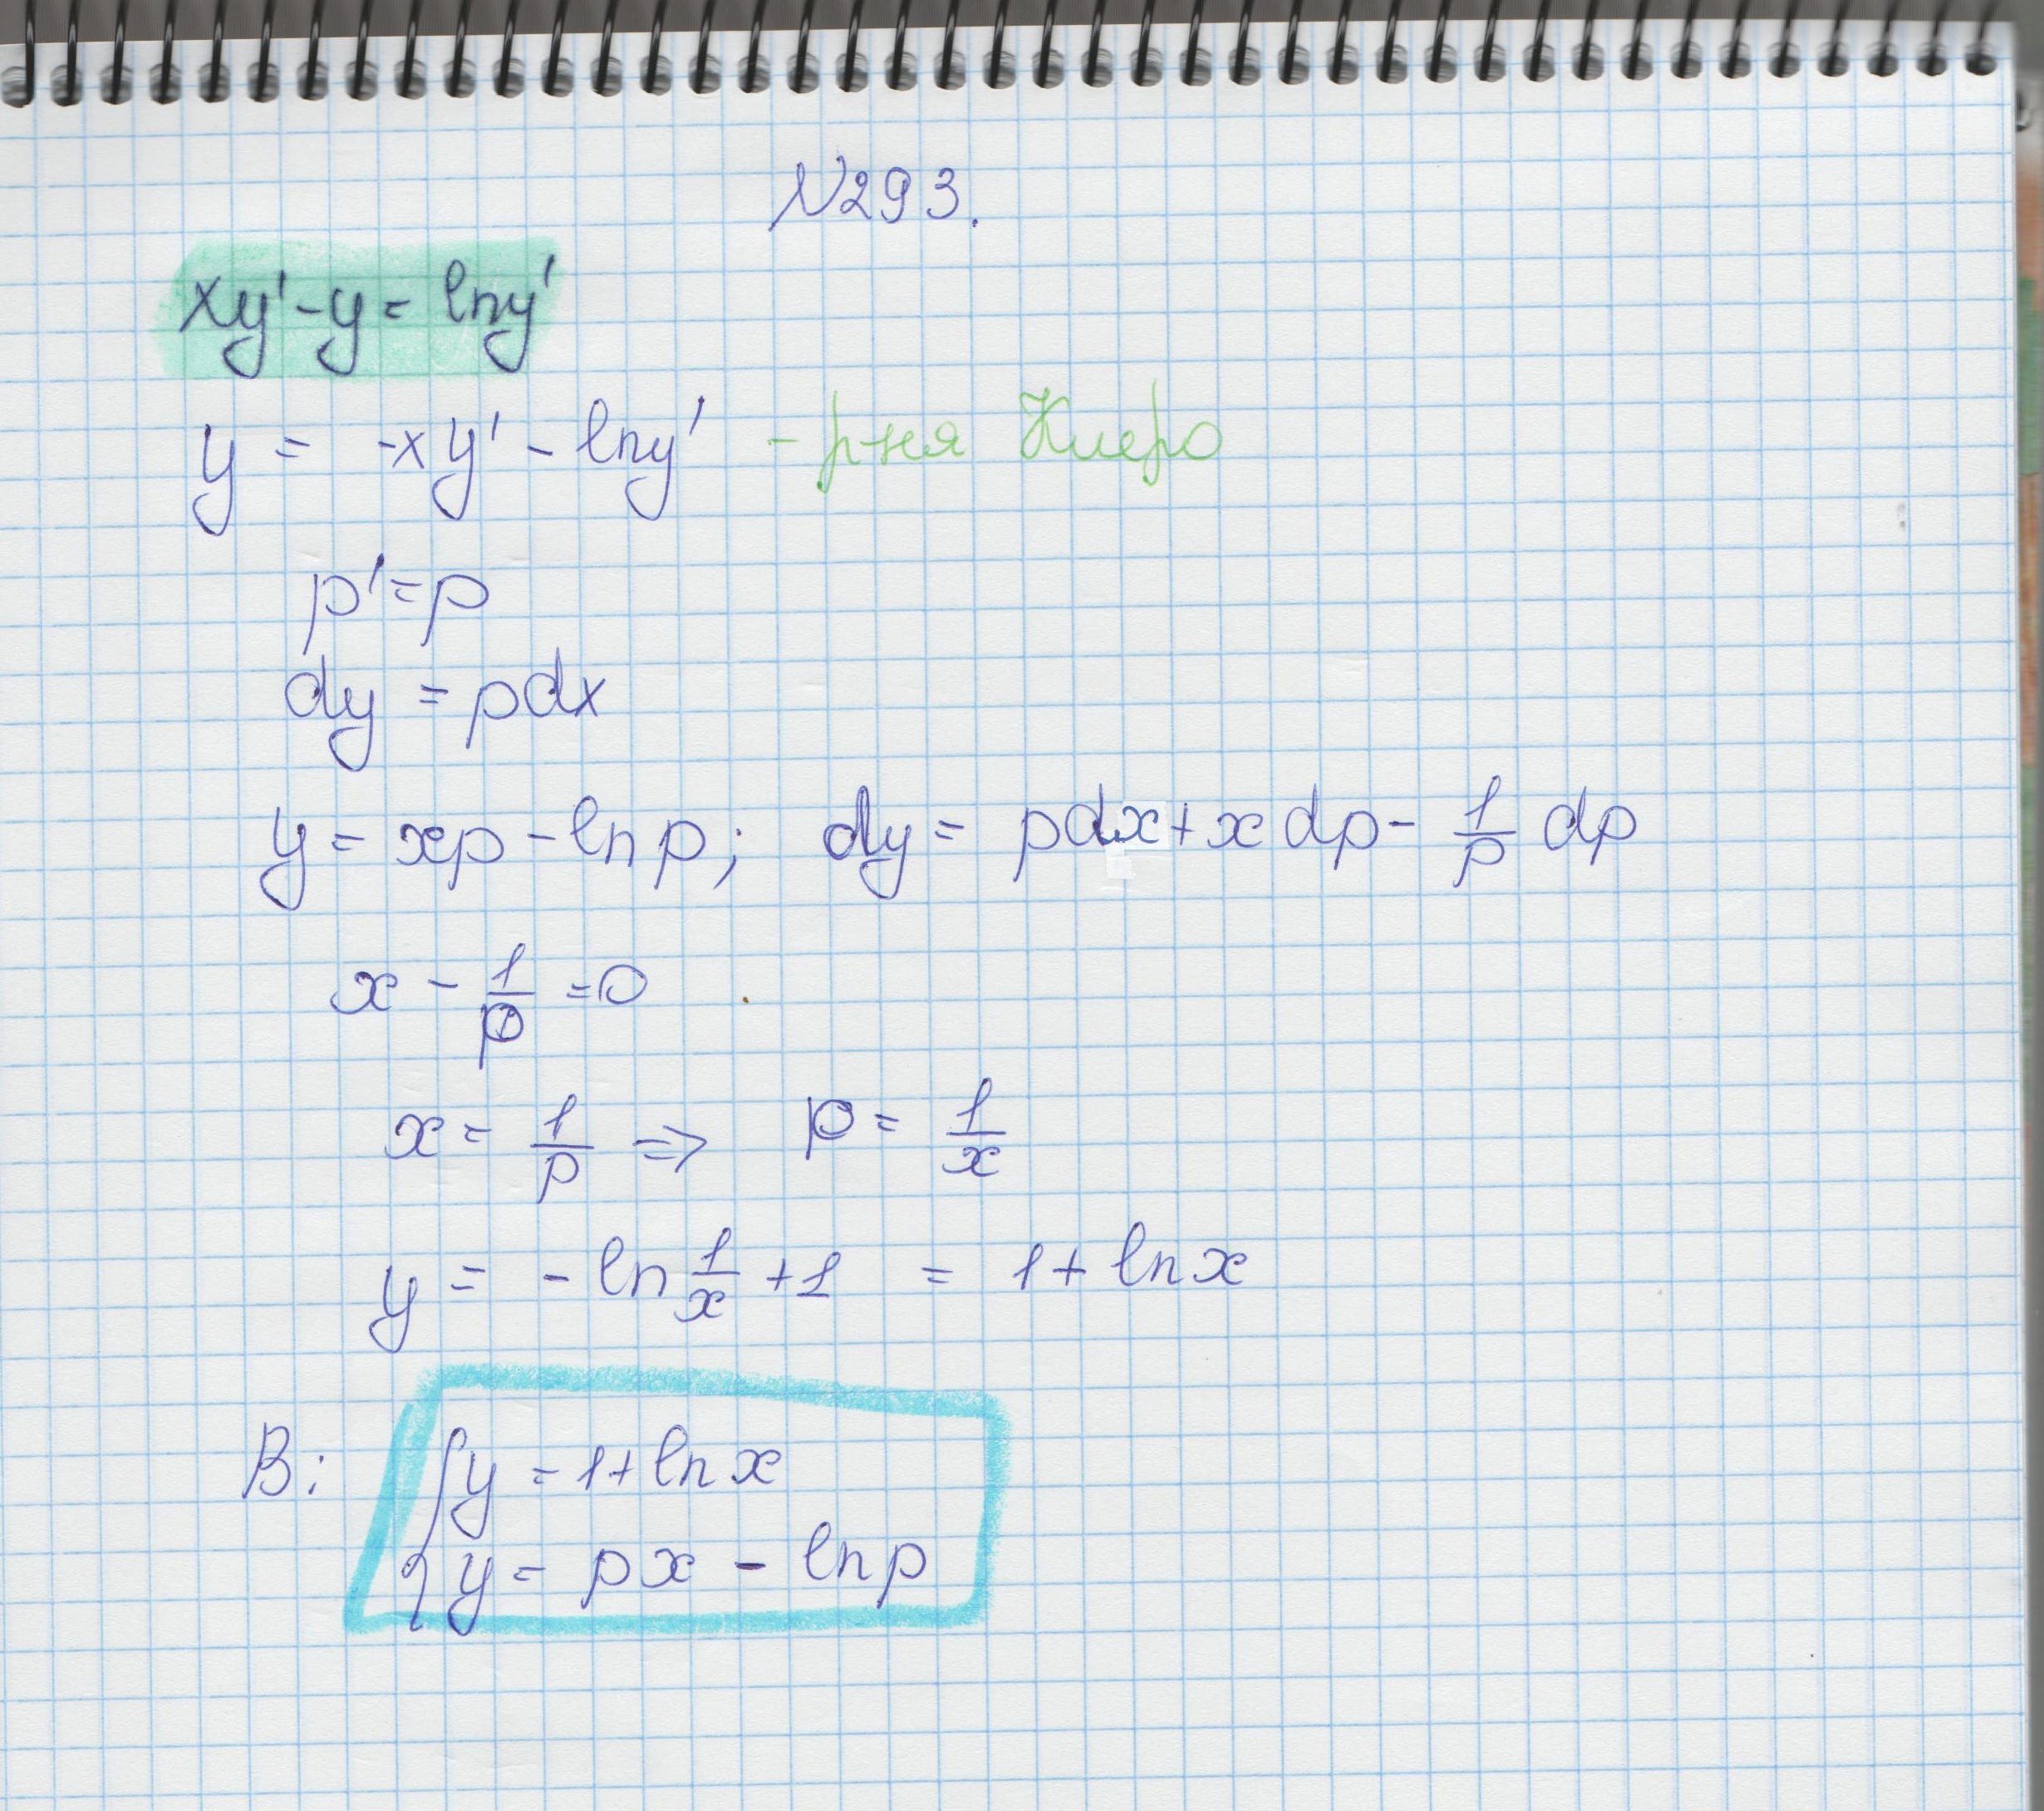 N293.
xy' - y = lny'
y = -xy' - lny' - р-ня Клеро
p' = p
dy = pdx
y = xp - ln p; dy = pdx + x dp - 1/p dp
x - 1/p = 0
x = 1/p => p = 1/x
y = - ln 1/x + 1 = 1 + ln x
В: { y = 1 + ln x
y = px - ln p